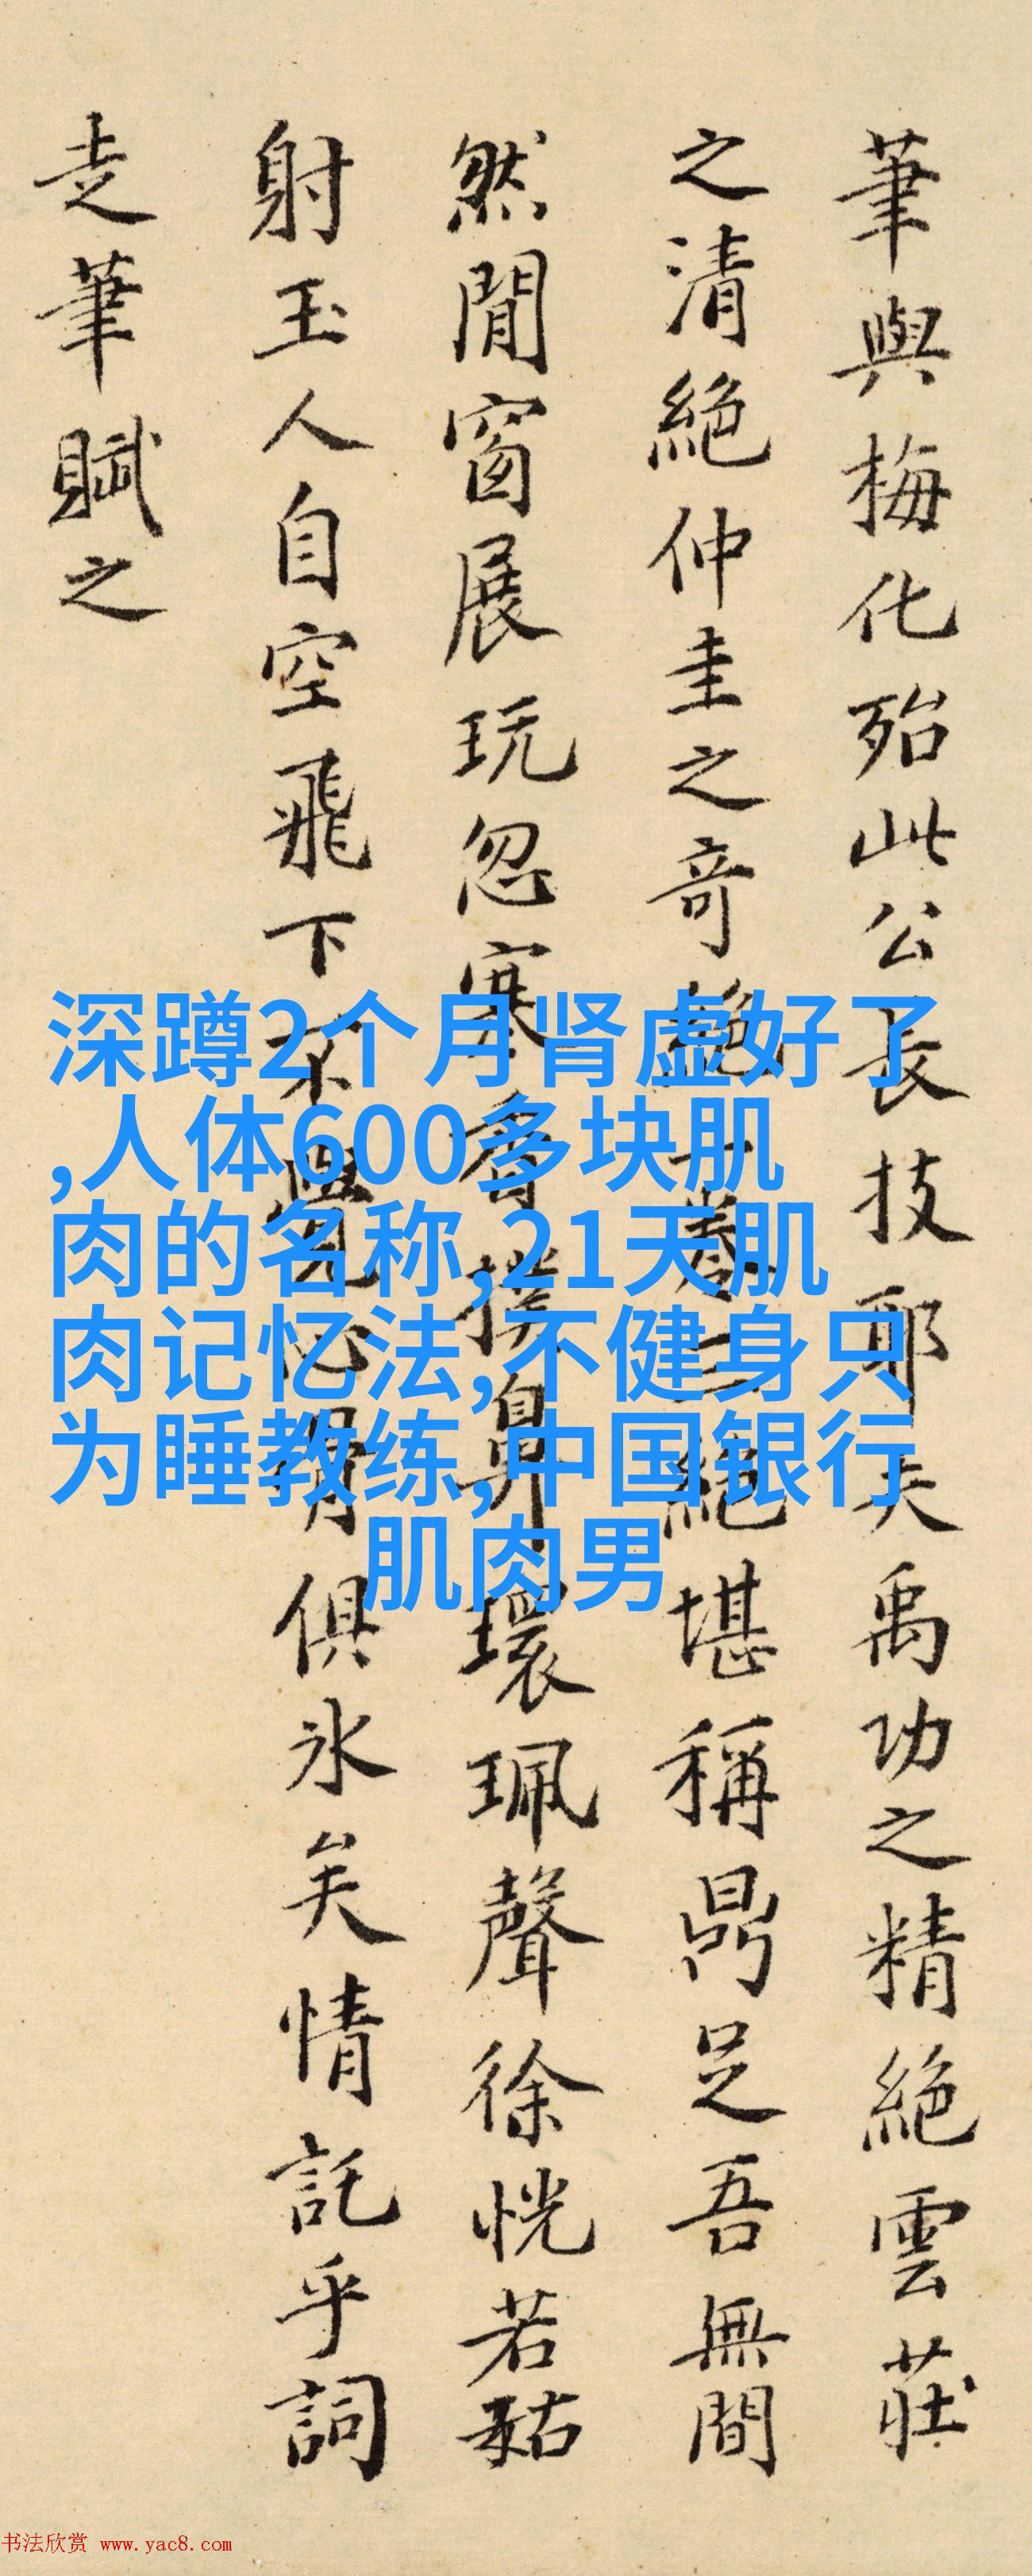 筆與梅化殆此公長技耶夫禹功之精絕雲莊
之清絕仲圭之奇絕一卷三絕堪稱鼎足吾無間
然閒窗展玩忽寒香撲鼻環珮聲徐恍若姑
射玉人自空飛下不覺心骨俱冰矣情託乎詞
走筆賦之
深蹲2个月肾虚好了
,人体600多块肌
肉的名称,21天肌
肉记忆法,不健身只
为睡教练,中国银行
肌肉男
书法欣赏 www.yac8.com